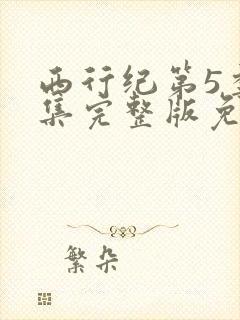 西行纪第5季
集完整版免
繁朵